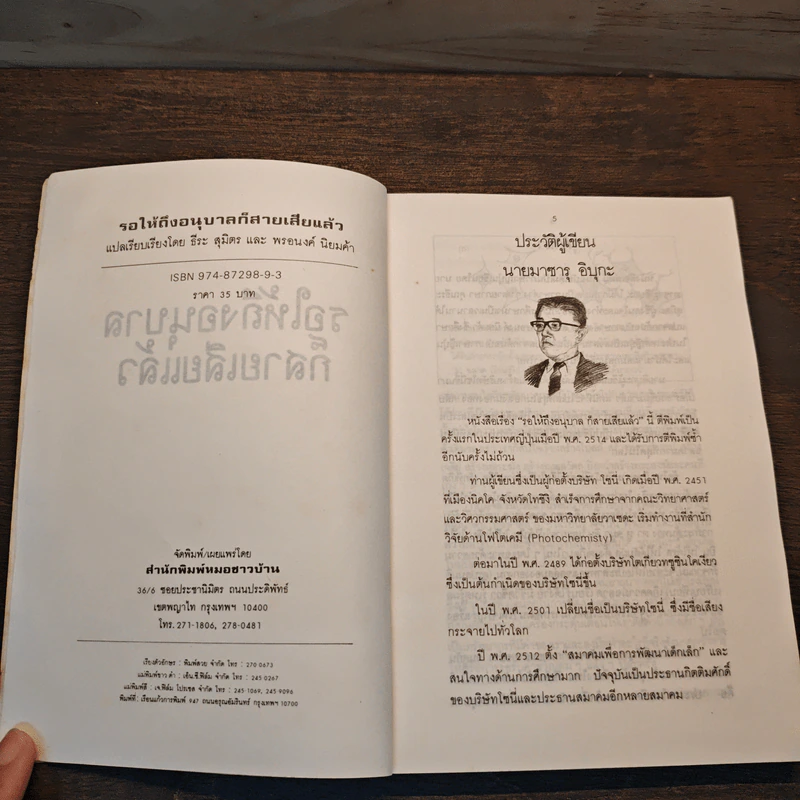 รอให้ถึงอนุบาลก็สายเสียแล้ว
แปลเรียบเรียงโดย ธีระ สุมิตร และ พรอนงค์ นิยมค้า
ISBN 974-87298-9-3
ราคา 35 บาท
จัดพิมพ์/เผยแพร่โดย
สำนักพิมพ์หมอชาวบ้าน
36/6 ซอยประชานิมิตร ถนนประดิพัทธ์
เขตพญาไท กรุงเทพฯ 10400
โทร. 271-1806, 278-0481
เรียงตัวอักษร : พิมพ์สวย จำกัด โทร : 270 0673
แม่พิมพ์ขาว ดำ : เอ็น.ซี.ฟิล์ม จำกัด โทร : 245 0267
แม่พิมพ์สี : เจ.ฟิล์ม โปรเซส จำกัด โทร : 245-1069, 245-9096
พิมพ์ที่ : เรือนแก้วการพิมพ์ 947 ถนนอรุณอัมรินทร์ กรุงเทพฯ 10700
5
ประวัติผู้เขียน
นายมาซารุ อิบุกะ
หนังสือเรื่อง “รอให้ถึงอนุบาล ก็สายเสียแล้ว” นี้ ตีพิมพ์เป็น
ครั้งแรกในประเทศญี่ปุ่นเมื่อปี พ.ศ. 2514 และได้รับการตีพิมพ์ซ้ำ
อีกนับครั้งไม่ถ้วน
ท่านผู้เขียนซึ่งเป็นผู้ก่อตั้งบริษัท โซนี่ เกิดเมื่อปี พ.ศ. 2451
ที่เมืองนิคโค จังหวัดโทชิงิ สำเร็จการศึกษาจากคณะวิทยาศาสตร์
และวิศวกรรมศาสตร์ ของมหาวิทยาลัยวาเซดะ เริ่มทำงานที่สำนัก
วิจัยด้านโฟโตเคมี (Photochemisty)
ต่อมาในปี พ.ศ. 2489 ได้ก่อตั้งบริษัทโตเกียวทซูชินโคเงียว
ซึ่งเป็นต้นกำเนิดของบริษัทโซนี่ขึ้น
ในปี พ.ศ. 2501 เปลี่ยนชื่อเป็นบริษัทโซนี่ ซึ่งมีชื่อเสียง
กระจายไปทั่วโลก
ปี พ.ศ. 2512 ตั้ง “สมาคมเพื่อการพัฒนาเด็กเล็ก” และ
สนใจทางด้านการศึกษามาก ปัจจุบันเป็นประธานกิตติมศักดิ์
ของบริษัทโซนี่และประธานสมาคมอีกหลายสมาคม